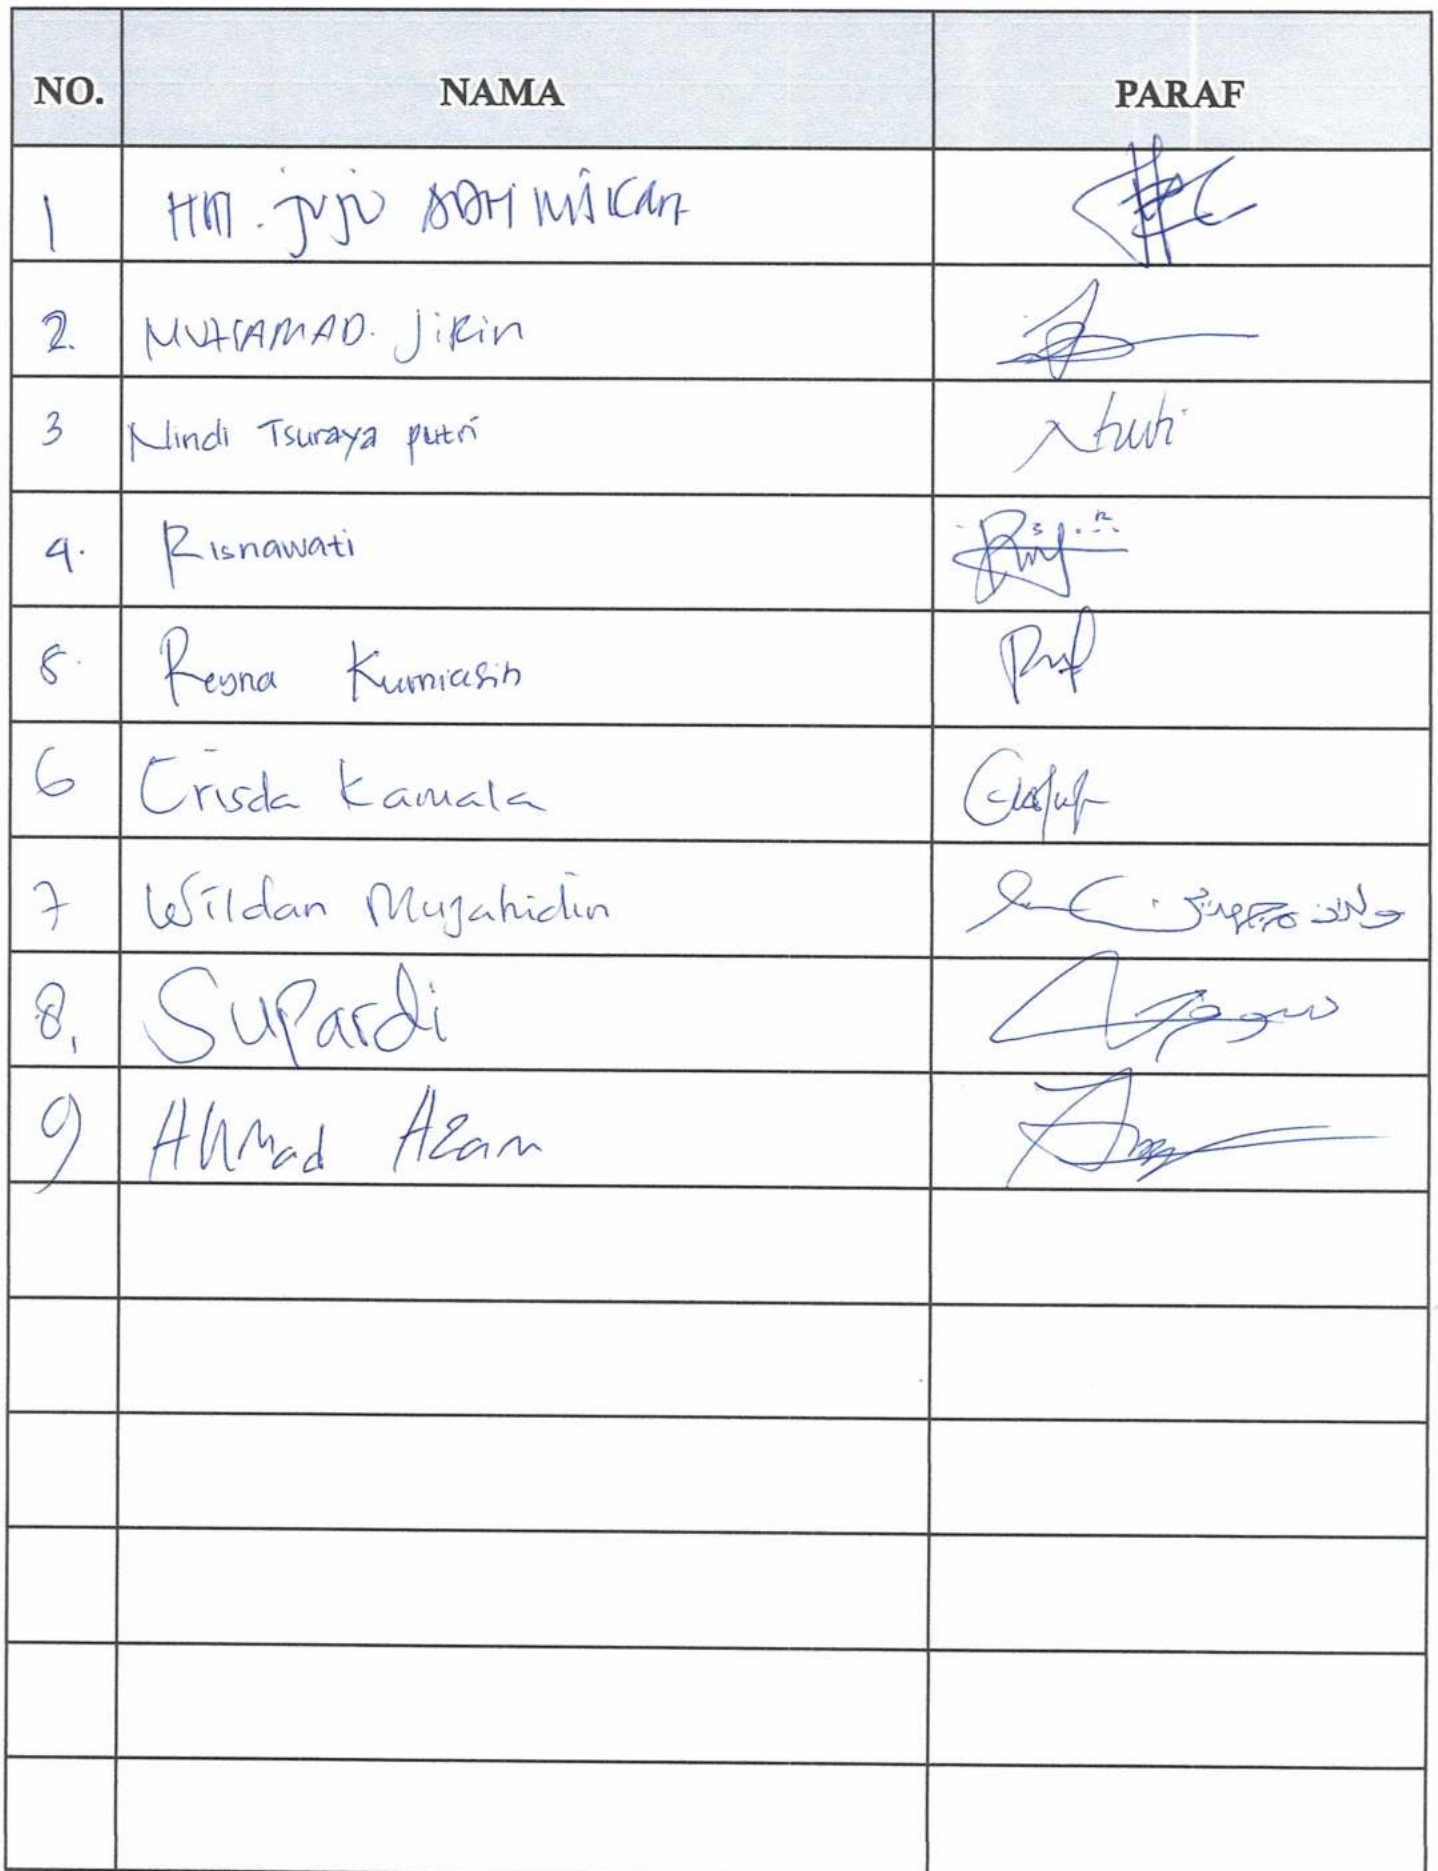 NO. NAMA PARAF
1 HM. juju
2. MUHAMAD. Jikin
3 Nindi Tsuraya putri
4. Risnawati
5. Resna Kurniasih
6 Crisda Kamala
7 Wildan Mujahidin
8, SuPardi
9 Ahmad Azam